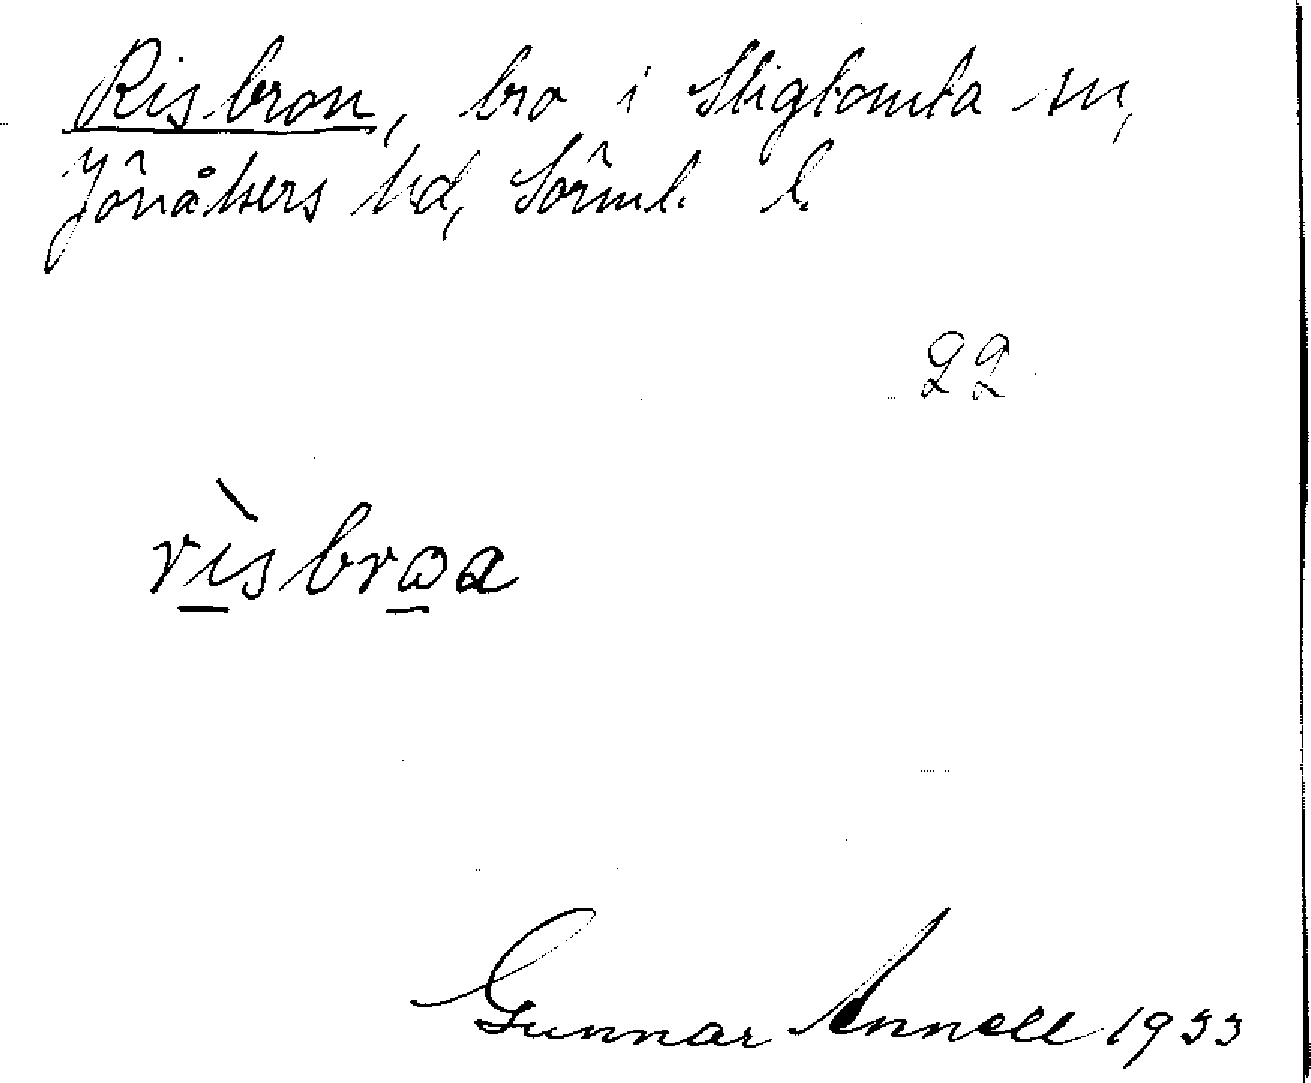 Risbron, bro i Stigtomta sn,
Jönåkers hd, Sörml. l.
22
rìsbrωa
Gunnar Annell 1933